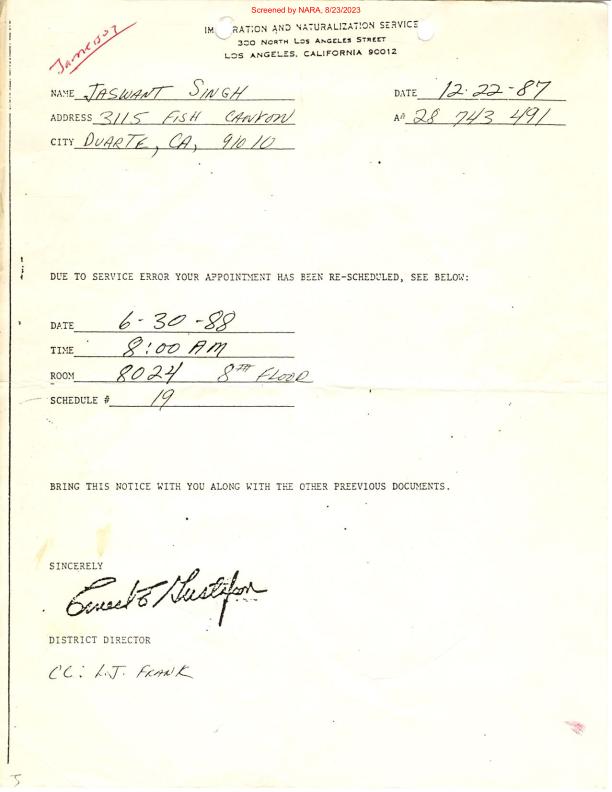 Screened by NARA, 8/23/2023
IM RATION AND NATURALIZATION SERVICE
300 NORTH LOS ANGELES STREET
LOS ANGELES, CALIFORNIA 90012
NAME JASWANT SINGH DATE 12-22-87
ADDRESS 3115 FISH CANYON A# 28 743 491
CITY DUARTE, CA, 91010
DUE TO SERVICE ERROR YOUR APPOINTMENT HAS BEEN RE-SCHEDULED, SEE BELOW:
DATE 6-30-88
TIME 8:00 AM
ROOM 8024 8TH FLOOR
SCHEDULE # 19
BRING THIS NOTICE WITH YOU ALONG WITH THE OTHER PREEVIOUS DOCUMENTS.
SINCERELY
Ernest E Gustafson
DISTRICT DIRECTOR
CC: L.J. FRANK